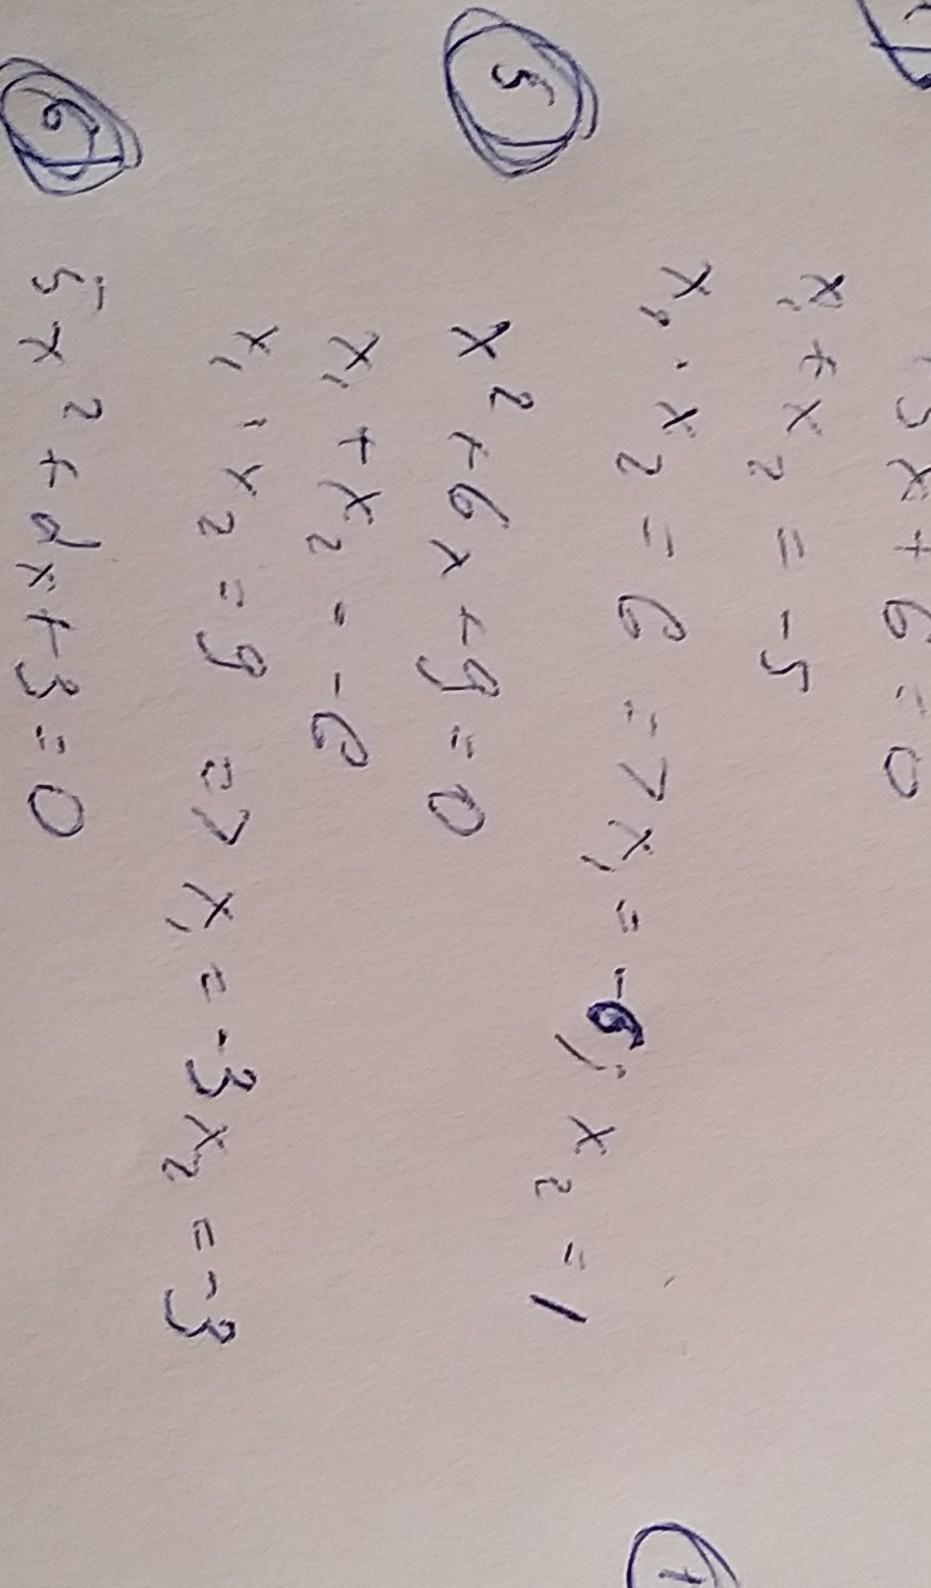 5x + 6 = 0
x₁ + x₂ = -5
x₁ · x₂ = 6 => x₁ = -6; x₂ = 1
5
x² + 6x + 9 = 0
x₁ + x₂ = -6
x₁ · x₂ = 9 => x₁ = -3 x₂ = -3
6
5x² + dx + 3 = 0